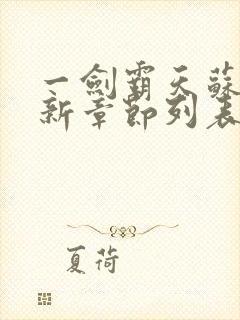 一劍霸天蘇
新章節列表
夏荷